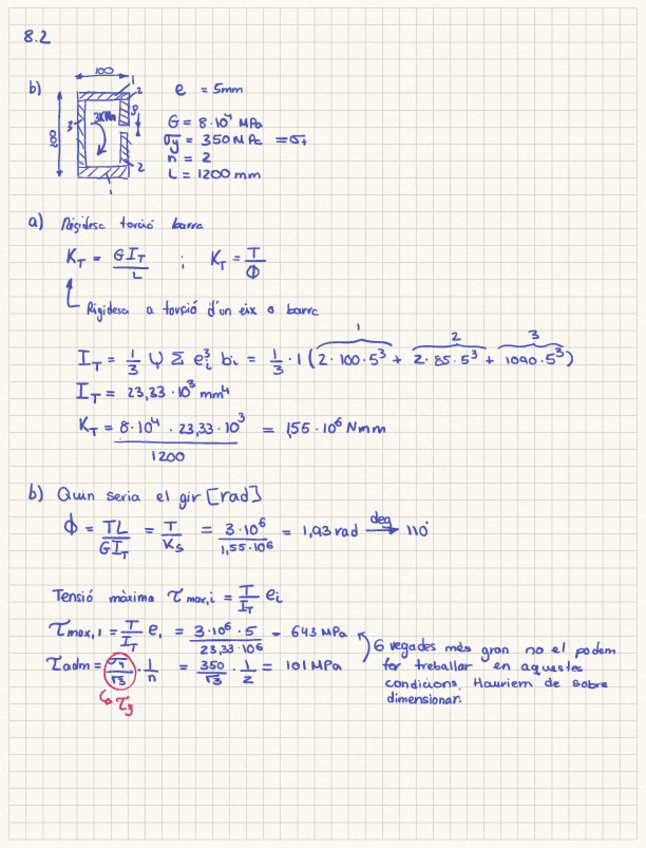 8.2
b) e = 5mm
100
1
2
8
3
3KNm
200
2
1
G = 8·10⁴ MPa
σy = 350 MPa = σ+
n = 2
L = 1200 mm
a) Rigidesc torció barra
K_T = GI_T / L ; K_T = T / Φ
Rigidesa a torció d'un eix o barra
1 2 3
I_T = 1/3 Ψ Σ e³ᵢ bᵢ = 1/3 · 1 (2·100·5³ + 2·85·5³ + 1090·5³)
I_T = 23,33·10³ mm⁴
K_T = 8·10⁴ · 23,33·10³ / 1200 = 1,55·10⁶ Nmm
b) Quin seria el gir [rad]
Φ = TL / GI_T = T / Ks = 3·10⁶ / 1,55·10⁶ = 1,93 rad deg → 110°
Tensió màxima τ max,i = T / I_T eᵢ
τ max,1 = T / I_T e₁ = 3·10⁶·5 / 23,33·10⁶ = 643 MPa
τ adm = σy / √3 · 1/n = 350 / √3 · 1/2 = 101 MPa
τy
6 vegades més gran no el podem
fer treballar en aquestes
condicions. Hauriem de sobre
dimensionar.